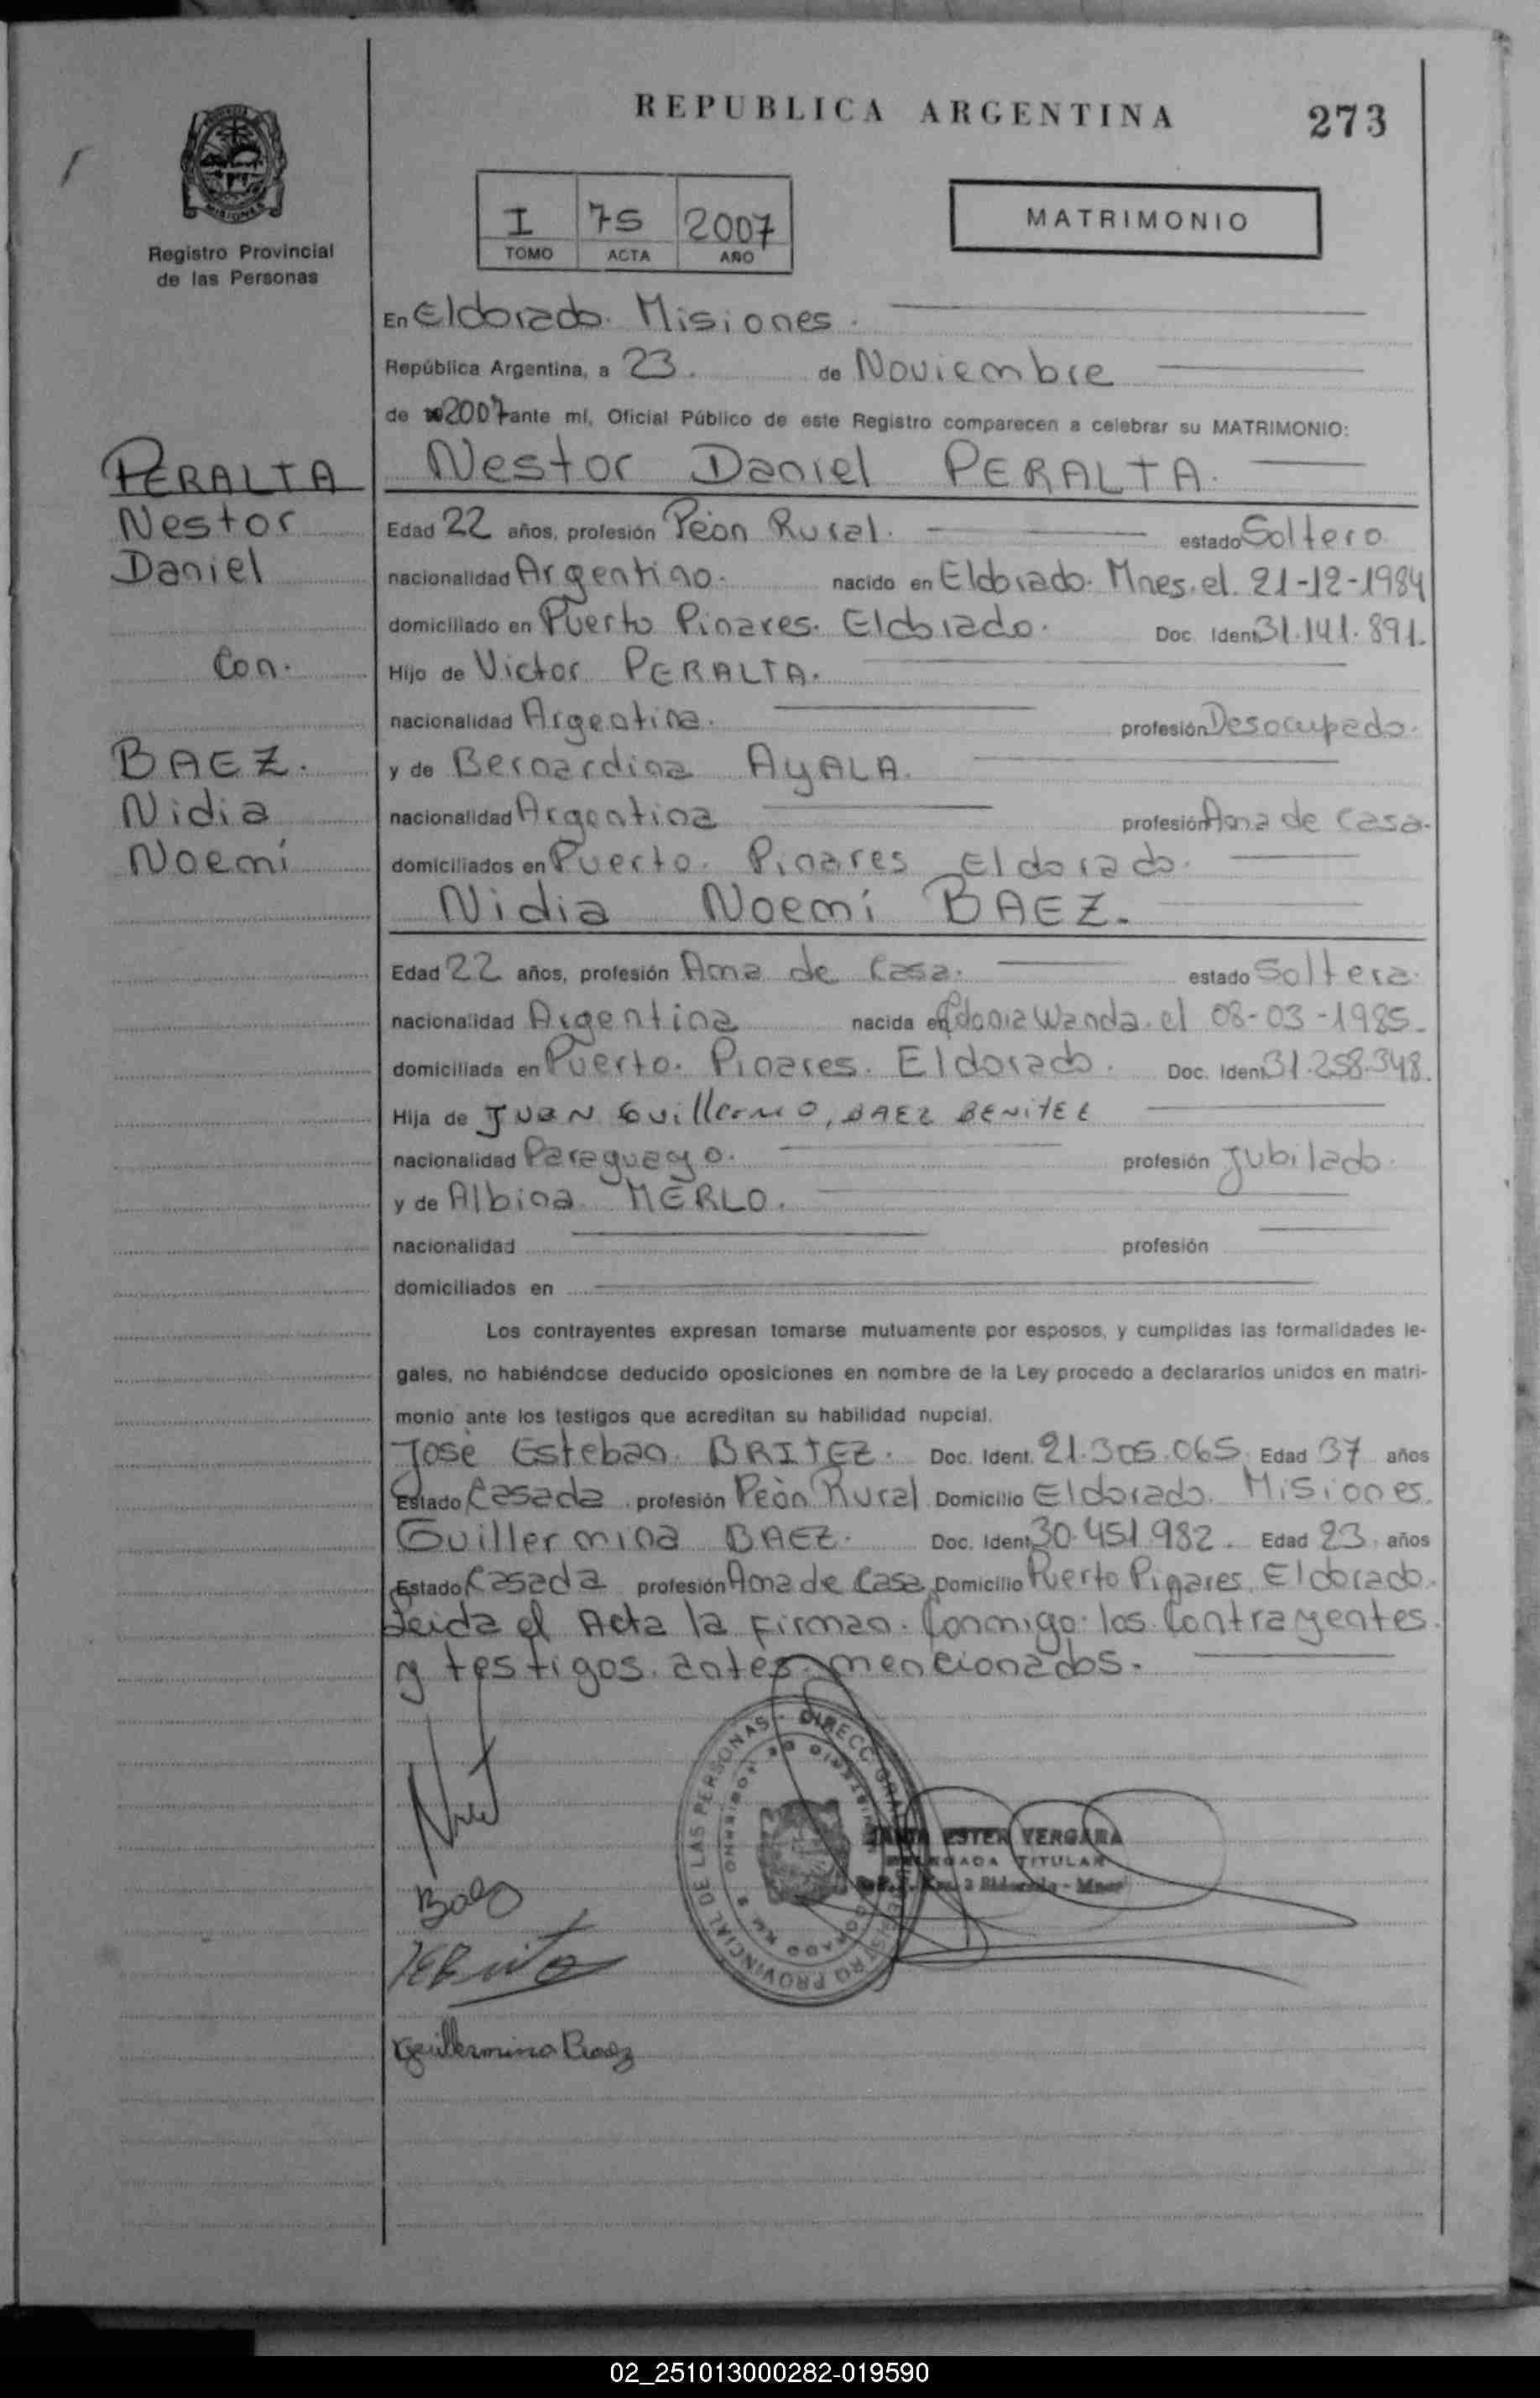 REPUBLICA ARGENTINA
273
Registro Provincial
de las Personas
I 75 2007
TOMO ACTA AÑO
MATRIMONIO
En Eldorado. Misiones.
República Argentina, a 23. de Noviembre
de 2007 ante mí, Oficial Público de este Registro comparecen a celebrar su MATRIMONIO:
PERALTA
Nestor
Daniel
Con.
BAEZ.
Nidia
Noemí
Nestor Daniel PERALTA.
Edad 22 años, profesión Peón Rural. estado Soltero
nacionalidad Argentino. nacido en Eldorado. Mnes. el. 21-12-1984
domiciliado en Puerto Pinares. Eldorado. Doc. Ident. 31.141.891.
Hijo de Victor PERALTA.
nacionalidad Argentina. profesión Desocupado.
y de Bernardina AyALA.
nacionalidad Argentina profesión Ama de Casa.
domiciliados en Puerto. Pinares Eldorado.
Nidia Noemí BAEZ.
Edad 22 años, profesión Ama de Casa. estado Soltera.
nacionalidad Argentina nacida en Colonia Wanda. el 08-03-1985.
domiciliada en Puerto. Pinares. Eldorado. Doc. Ident. 31.258.348.
Hija de JUAN Guillermo, BAEZ BENITEZ
nacionalidad Paraguayo. profesión Jubilado.
y de Albina MERLO.
nacionalidad profesión
domiciliados en
Los contrayentes expresan tomarse mutuamente por esposos, y cumplidas las formalidades le-
gales, no habiéndose deducido oposiciones en nombre de la Ley procedo a declararlos unidos en matri-
monio ante los testigos que acreditan su habilidad nupcial.
Josè Esteban. BRITEZ. Doc. Ident. 21.305.065. Edad 37 años
Estado Casada. profesión Peòn Rural Domicilio Eldorado. Misiones.
Guillermina BAEZ. Doc. Ident. 30.451.982. Edad 23. años
Estado Casada profesión Ama de Casa Domicilio Puerto Pinares. Eldorado.
Leida el Acta la Firman. Conmigo. los Contrayentes.
y testigos. antes mencionados.
DIRECC. GRAL. REGISTRO PROVINCIAL DE LAS PERSONAS
MINISTERIO DE GOBIERNO
ESTER VERGARA
DELEGADA TITULAR
3 Eldorado - Mnes
Baez
Guillermina Baez
02_251013000282-019590